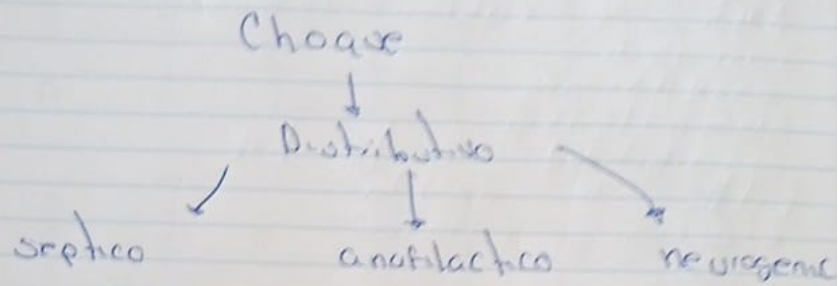 Choque
Distributivo
septico anafilactico neurogenic